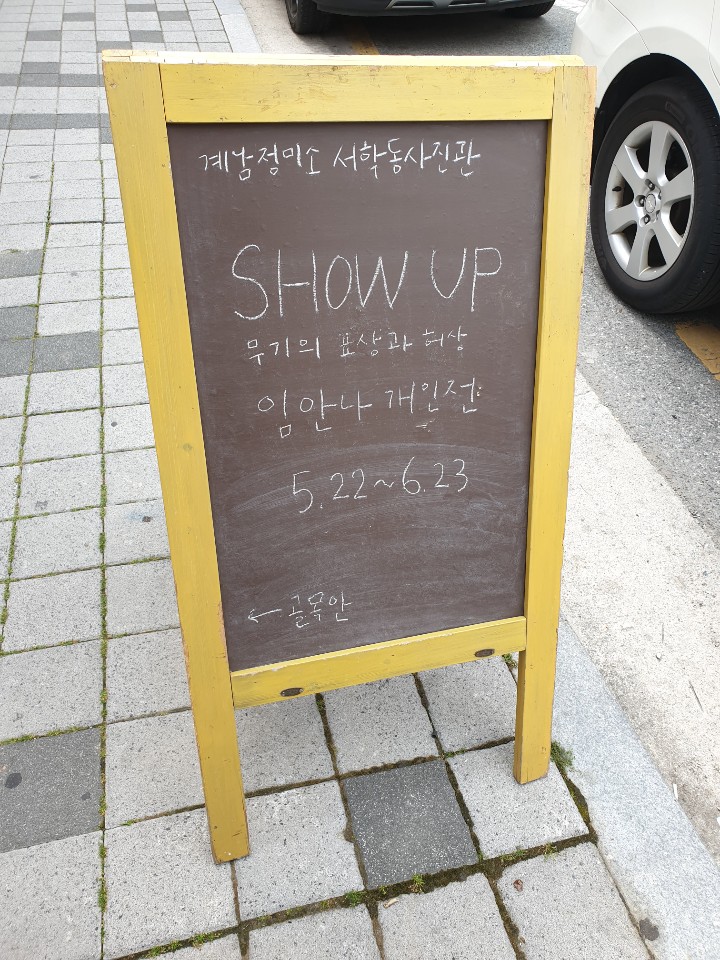 계남정미소 서학동사진관
SHOW UP
무기의 표상과 허상
임안나 개인전
5.22~6.23
← 골목안